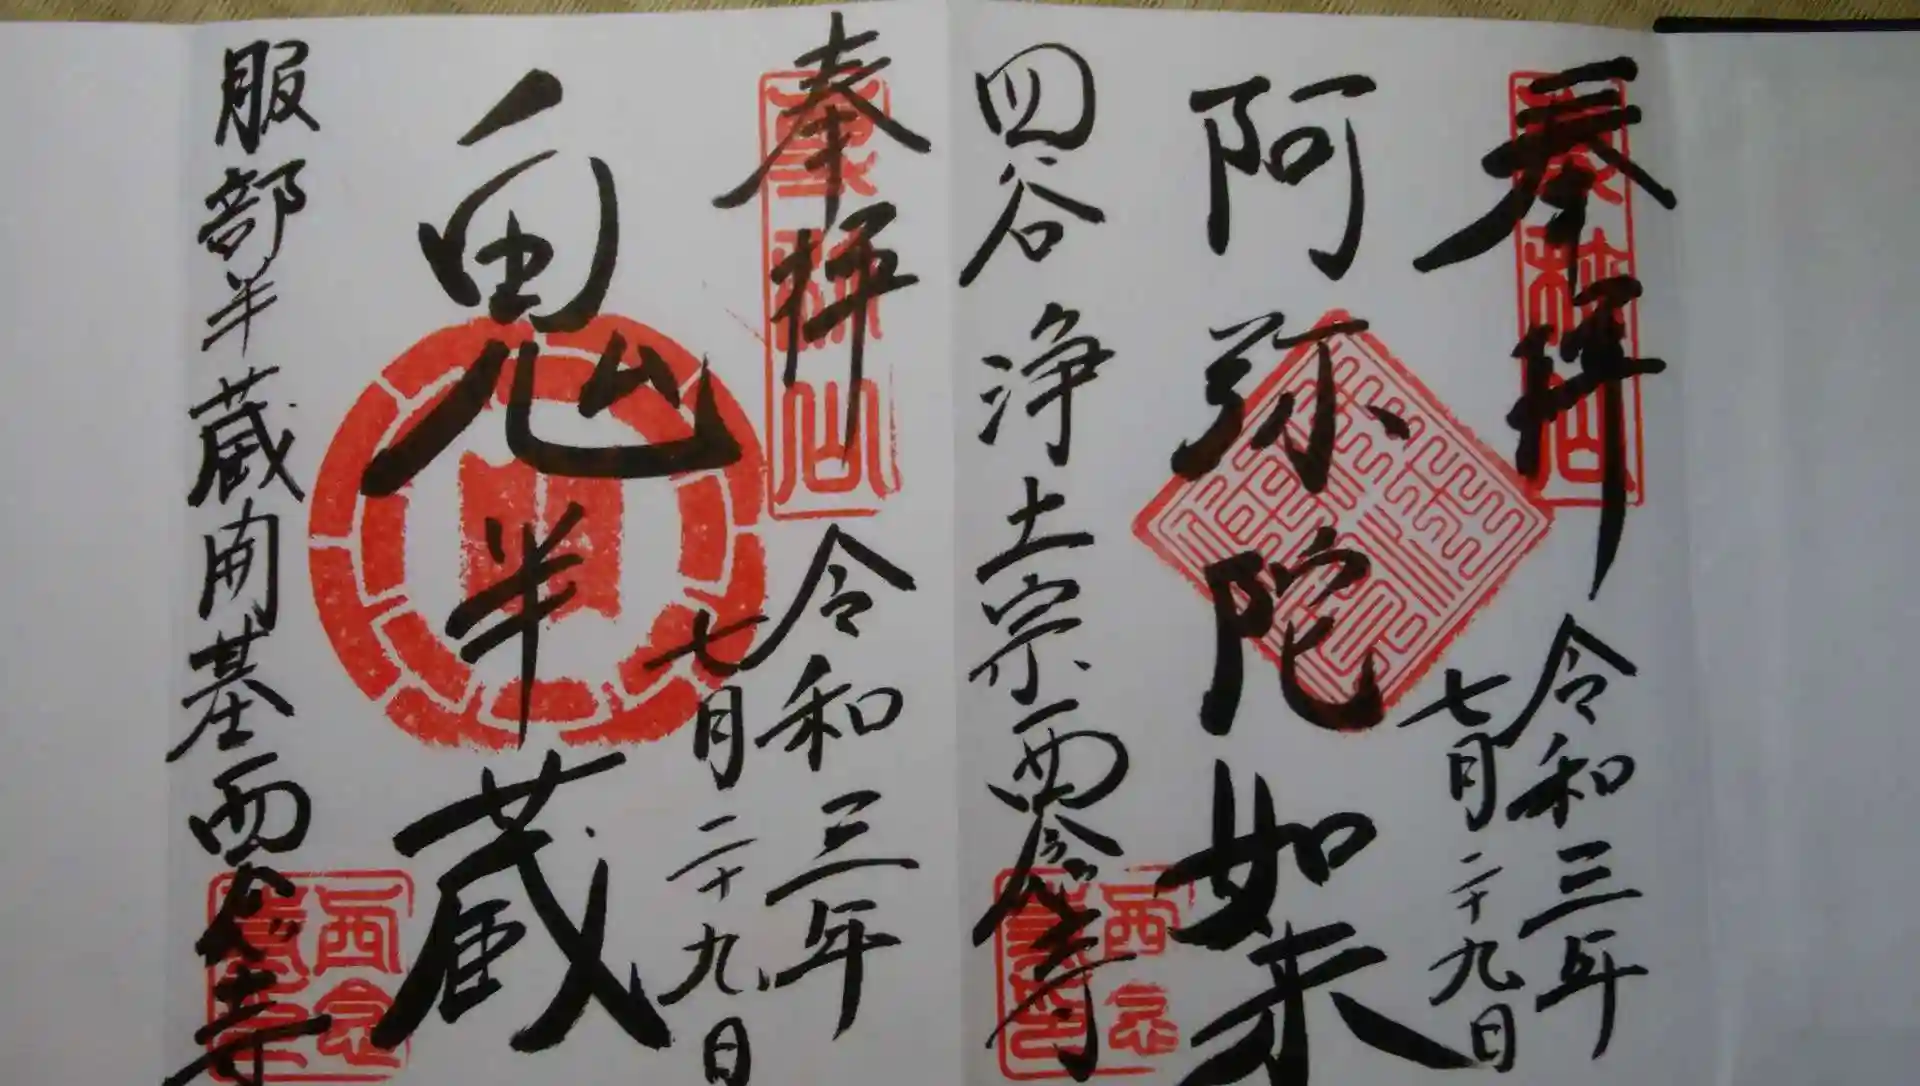 奉拝
令和三年
七月二十九日
阿弥陀如来
四谷 浄土宗西念寺
奉拝
令和三年
七月二十九日
鬼半蔵
服部半蔵開基西念寺